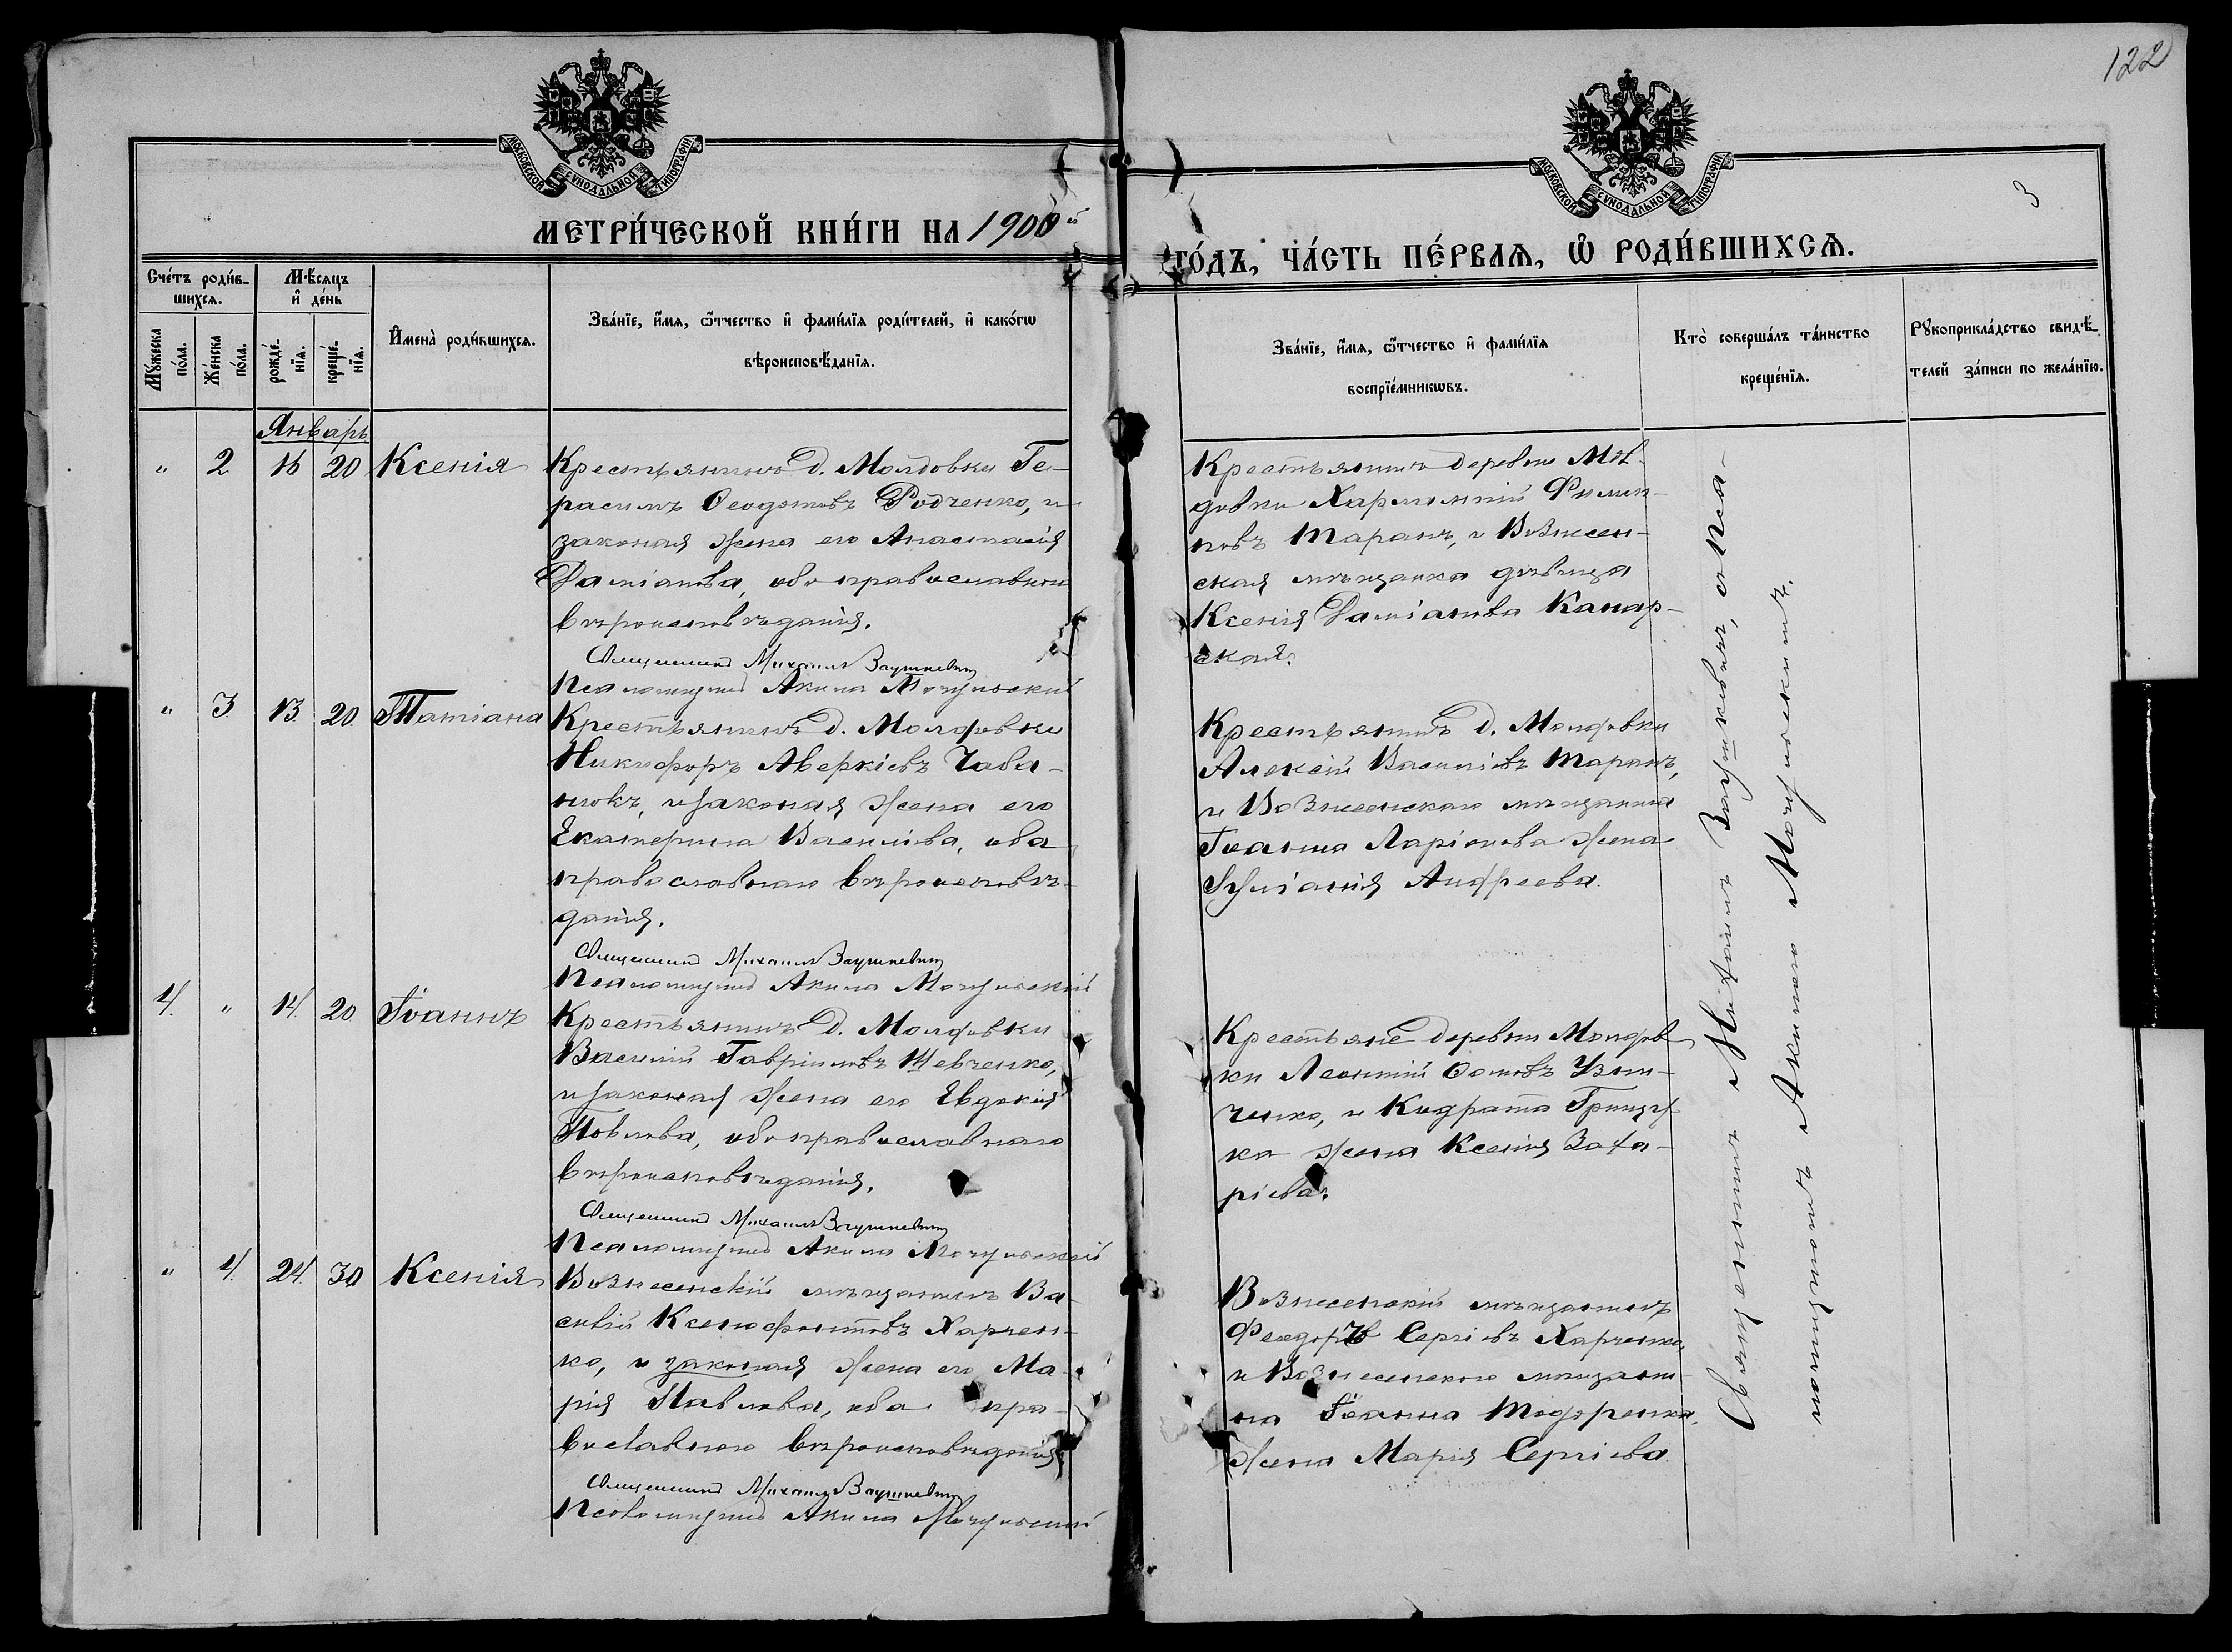 122
3
МОСКОВСКОЙ СУНОДАЛЬНОЙ ТИПОГРАФІИ
МОСКОВСКОЙ СУНОДАЛЬНОЙ ТИПОГРАФІИ
МЕТРИ́ЧЕСКОЙ КНИ́ГИ НА 1900й
ГО́ДЪ, ЧА́СТЬ ПЕ́РВАѦ, Ѡ҆ РОДИ́ВШИХСѦ.
Сче́тъ роди́в-
шихсѧ.
Мѣ́сѧцъ
и҆ де́нь
Мꙋ́жеска
по́ла.
Же́нска
по́ла.
рожде́-
нїѧ.
креще́-
нїѧ.
И҆мена̀ роди́вшихсѧ.
Зва́нїе, и҆́мѧ, ѻ҆́тчество и҆ фами́лїѧ роди́телей, и҆ како́гѡ
вѣроисповѣ́данїѧ.
Зва́нїе, и҆́мѧ, ѻ҆́тчество и҆ фами́лїѧ
воспрїе́мникѡвъ.
Кто̀ соверша́лъ та́инство
креще́нїѧ.
Рꙋкоприкла́дство свидѣ́-
телей за́писи по жела́нїю.
Январь
" 2 16 20 Ксенія
Крестьянинъ д. Молдовки Ге-
расимъ Ѳеодотовъ Родченко, и
законая жена его Анастасія
Даміанова, обо православнои
вѣроисповѣданія.
Священникъ Михаилъ Заушкевич
Псаломщикъ Акила Мочульскій
Крестьянинъ деревни Мол-
довки Харлампій Филип-
повъ Таранъ, и Вознесен-
ская мѣщанка дѣвица
Ксенія Даміанова Камар-
ская.
" 3. 13 20. Татіана
Крестьянинъ д. Молдовки
Никифоръ Аверкіевъ Чаба-
нюкъ, и законая жена его
Екатерина Василіева, оба
православнаго вѣроисповѣ-
данія.
Священникъ Михаилъ Заушкевич
Псаломщикъ Акила Мочульскій
Крестьянинъ д. Молдовки
Алексій Василіевъ Таранъ,
и Вознесенскаго мѣщанина
Іоанна Ларіонова жена
Іуліанія Андреева.
4. " 14. 20. Іоаннъ
Крестьянинъ д. Молдовки
Василій Гавріиловъ Шевченко,
и законая жена его Евдокія
Павлова, обо православнаго
вѣроисповѣданія.
Священникъ Михаилъ Заушкевич
Псаломщикъ Акила Мочульскій
Крестьяне деревни Молдов
ки Леонтій
ченко, и Кидрата Грищу
ка жена Ксенія Заха-
ріева.
" 4. 24. 30 Ксенія
Вознесенскій мѣщанинъ Ва-
силій Ксенофонтовъ Харчен-
ко, и законая жена его Ма-
рія Павлова, оба пра-
вославного вѣроисповѣданія
Священникъ Михаилъ Заушкевич
Псаломщикъ Акила Мочульскій
Вознесенскій мѣщанинъ
Феодоръ Сергіевъ Харченко,
и Вознесенского мѣщани-
на Іоанна Тодоренка
жена Марія Сергіева.
Священникъ Михаилъ Заушкевичъ, с Пса-
ломщикомъ Акилою Мочульскимъ.